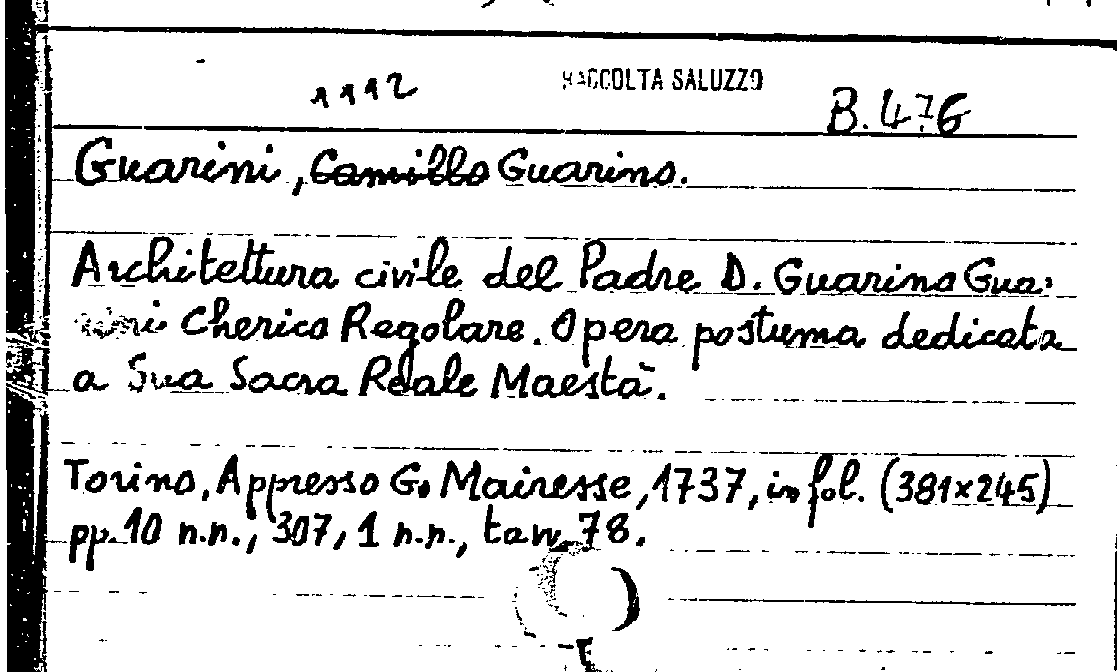 1112 RACCOLTA SALUZZO B.476
Guarini, Camillo Guarino.
Architettura civile del Padre D. Guarino Gua:
rini Cherico Regolare. Opera postuma dedicata
a Sua Sacra Reale Maestà.
Torino, Appresso G. Mairesse, 1737, in fol. (381×245)
pp. 10 n.n., 307, 1 n.n., tavv. 78.